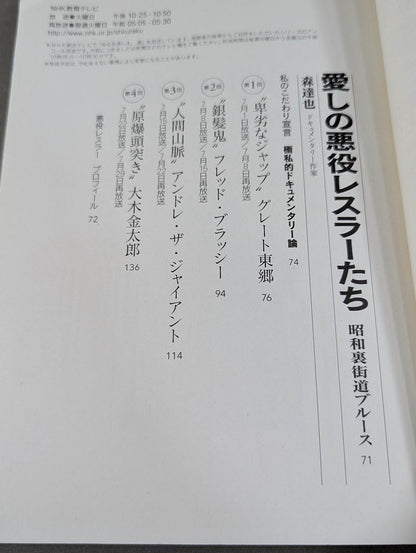 愛しの悪役レスラーたち 昭和裏街道ブルース 71
森達也 ドキュメンタリー作家
私のこだわり宣言 極私的ドキュメンタリー論 74
第1回 “卑劣なジャップ” グレート東郷 76
7月1日放送／7月8日再放送
第2回 “銀髪鬼” フレッド・ブラッシー 94
7月8日放送／7月15日再放送
第3回 “人間山脈” アンドレ・ザ・ジャイアント 114
7月15日放送／7月22日再放送
第4回 “原爆頭突き” 大木金太郎 136
7月22日放送／7月29日再放送
悪役レスラー プロフィール 72
NHK教育テレビ
放 送●火曜日 午後 10:25-10:50
再放送●火曜日 午前 05:05-05:30